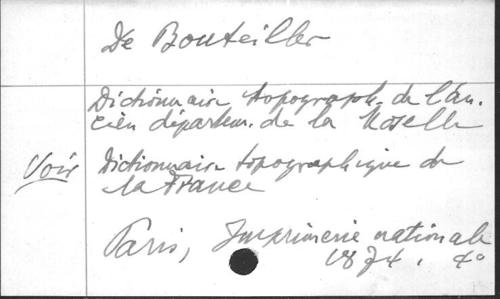 De Bouteiller
Dictionnaire topograph. de l'an-
cien départem. de la Moselle
Voir Dictionnaire topographique de
la France
Paris, Imprimerie nationale
1874. 4°